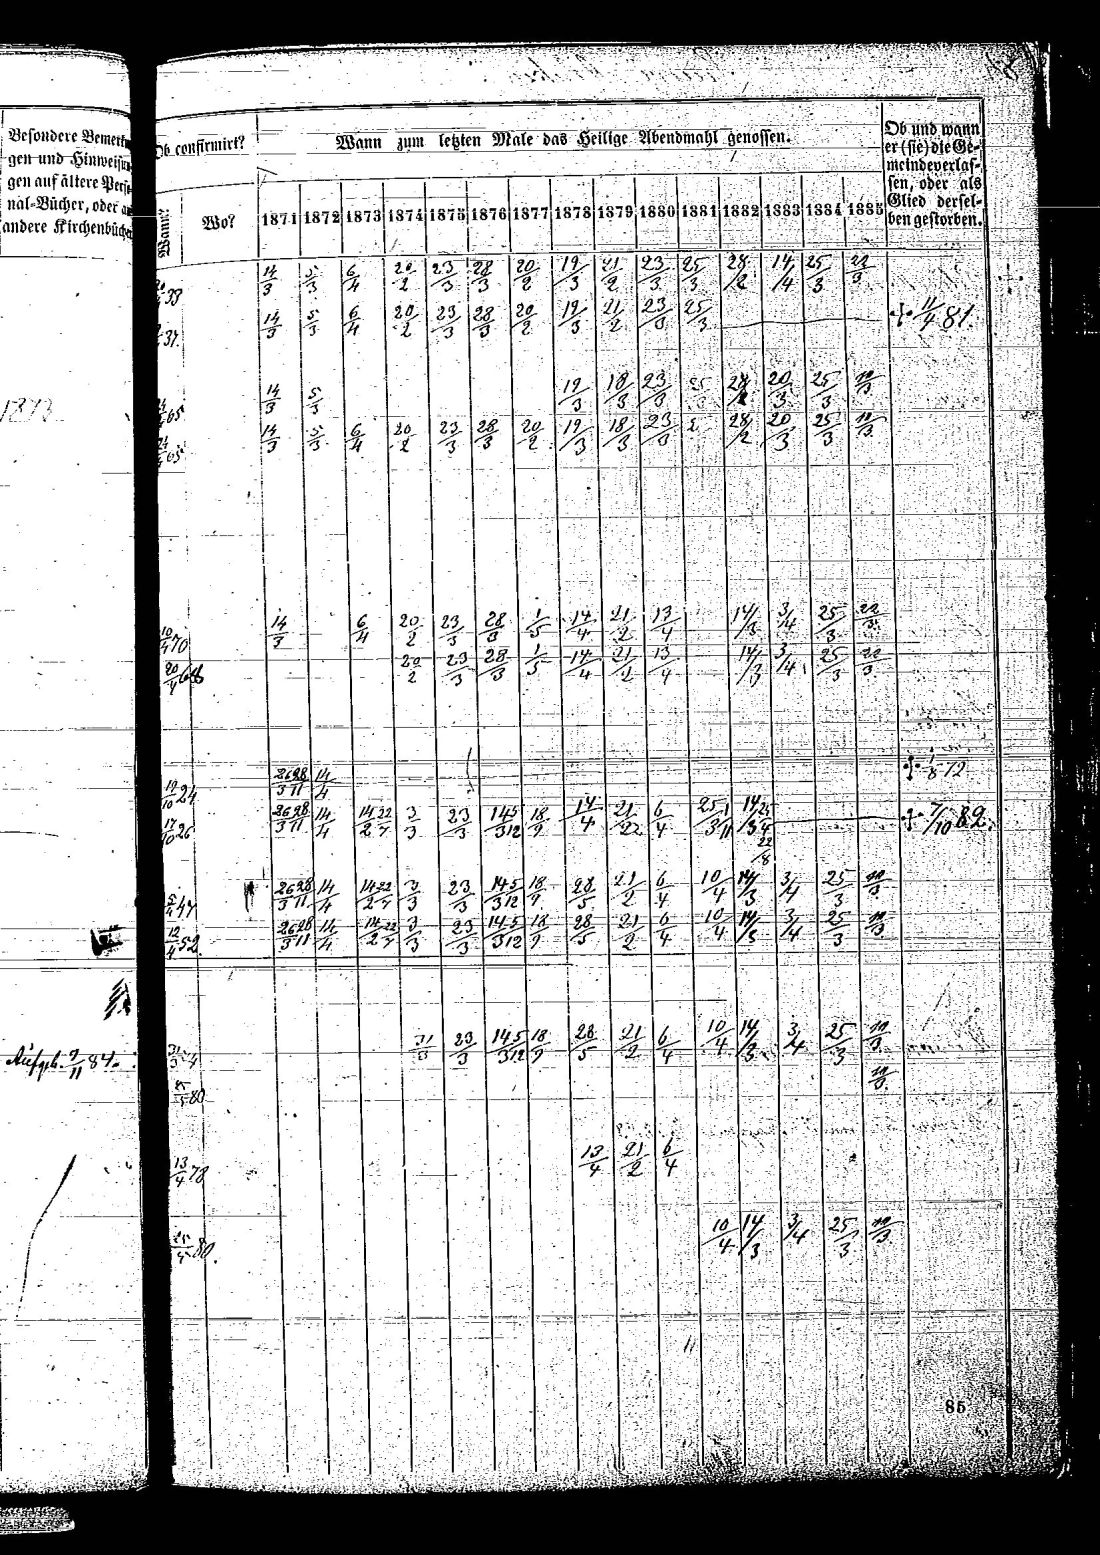 Besondere Bemerkun
gen und Hinweisun
gen auf ältere Perso
nal-Bücher, oder a
andere Kirchenbüche
Ob confirmirt?
Wann zum letzten Male das Heilige Abendmahl genossen.
Ob und wann
er (sie) die Ge-
meinde verlas-
sen, oder als
Glied dersel-
ben gestorben.
Wann? Wo? 1871 1872 1873 1874 1875 1876 1877 1878 1879 1880 1881 1882 1883 1884 1885
38 14/3 5/3 6/4 20/2 23/3 28/3 20/2 19/3 21/2 23/3 25/3 28/2 14/4 25/3 22/3
31 14/3 5/3 6/4 20/2 23/3 28/3 20/2 19/3 21/2 23/3 25/3 ✢ 11/4 81.
1873
65 14/3 5/3 19/3 18/3 23/3 28/2 20/3 25/3
65 14/3 5/3 6/4 20/2 23/3 28/3 20/2 19/3 18/3 23/3 28/2 20/3 25/3
70 14/3 6/4 20/2 23/3 28/3 1/5 14/4 21/2 13/4 14/3 3/4 25/3 22/3
20/4 68 20/2 23/3 28/3 1/5 14/4 21/2 13/4 14/3 3/4 25/3 22/3
24 26/3 28/11 14/4 ✢ 1/8 72
17/10 26 26/3 28/11 14/4 14/2 22/7 3/3 23/3 14/3 5/12 18/9 14/4 21/2 6/4 25/3 1/11 14/3 25/4 22/8 ✢ 7/10 82.
47 26/3 28/11 14/4 14/2 22/7 3/3 23/3 14/3 5/12 18/9 28/5 21/2 6/4 10/4 14/3 3/4 25/3
12/4 52. 26/3 28/11 14/4 14/2 22/7 3/3 23/3 14/3 5/12 18/9 28/5 21/2 6/4 10/4 14/3 3/4 25/3
Aufgeb. 9/11 84. 31/3 23/3 14/3 5/12 18/9 28/5 21/2 6/4 10/4 14/3 3/4 25/3
80
13/4 78 13/4 21/2 6/4
80. 10/4 14/3 3/4 25/3
85